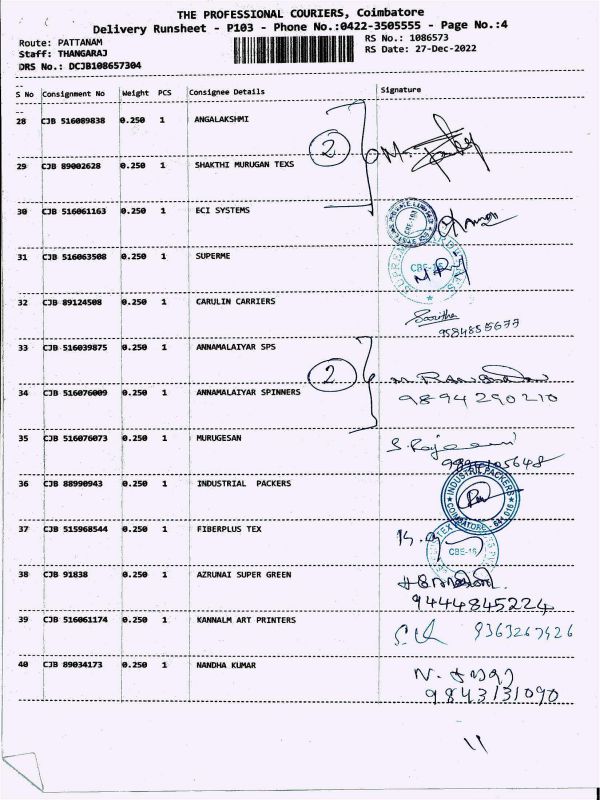 THE PROFESSIONAL COURIERS, Coimbatore
Delivery Runsheet - P103 - Phone No.:0422-3505555 - Page No.:4
Route: PATTANAM
RS No.: 1086573
Staff: THANGARAJ
RS Date: 27-Dec-2022
DRS No.: DCJB108657304
S No Consignment No Weight PCS Consignee Details Signature
28 CJB 516089838 0.250 1 ANGALAKSHMI
2
29 CJB 89002628 0.250 1 SHAKTHI MURUGAN TEXS
30 CJB 516061163 0.250 1 ECI SYSTEMS
31 CJB 516063508 0.250 1 SUPERME
CBE-16
32 CJB 89124508 0.250 1 CARULIN CARRIERS
9584855677
33 CJB 516039875 0.250 1 ANNAMALAIYAR SPS
2
34 CJB 516076009 0.250 1 ANNAMALAIYAR SPINNERS
9894290210
35 CJB 516076073 0.250 1 MURUGESAN
36 CJB 88990943 0.250 1 INDUSTRIAL PACKERS
INDUSTRIE PACKERS
COIMBATORE - 641 016
37 CJB 515968544 0.250 1 FIBERPLUS TEX
CBE-16
38 CJB 91838 0.250 1 AZRUNAI SUPER GREEN
9444845224
39 CJB 516061174 0.250 1 KANNALM ART PRINTERS
9363267426
40 CJB 89034173 0.250 1 NANDHA KUMAR
9843131090
11